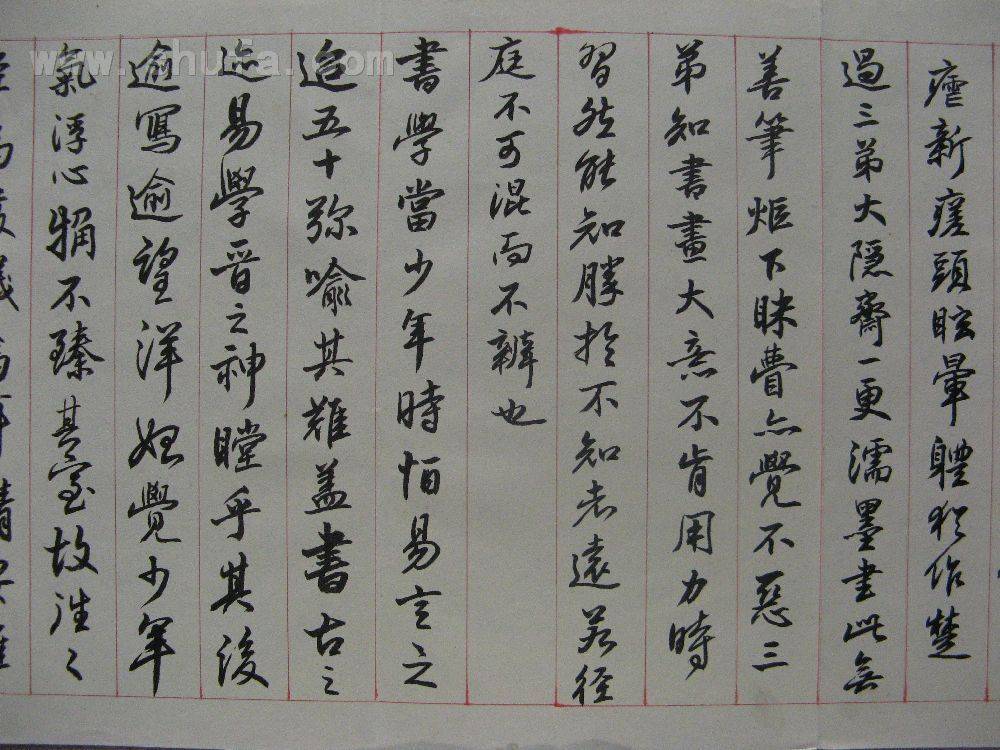 瘧新瘥頭眩暈體猶作楚
過三弟大隱齋一更濡墨書此無
善筆炬下眯瞢亦覺不惡三
弟知書畫大意不肯用力時
習然能知勝於不知者遠若徑
庭不可混而不辨也
書學當少年時怕易言之
迨五十彌喻其難蓋書古之
迹易學晉之神瞠乎其後
逾寫逾望洋如覺少年
氣浮心觕不臻其室故往々